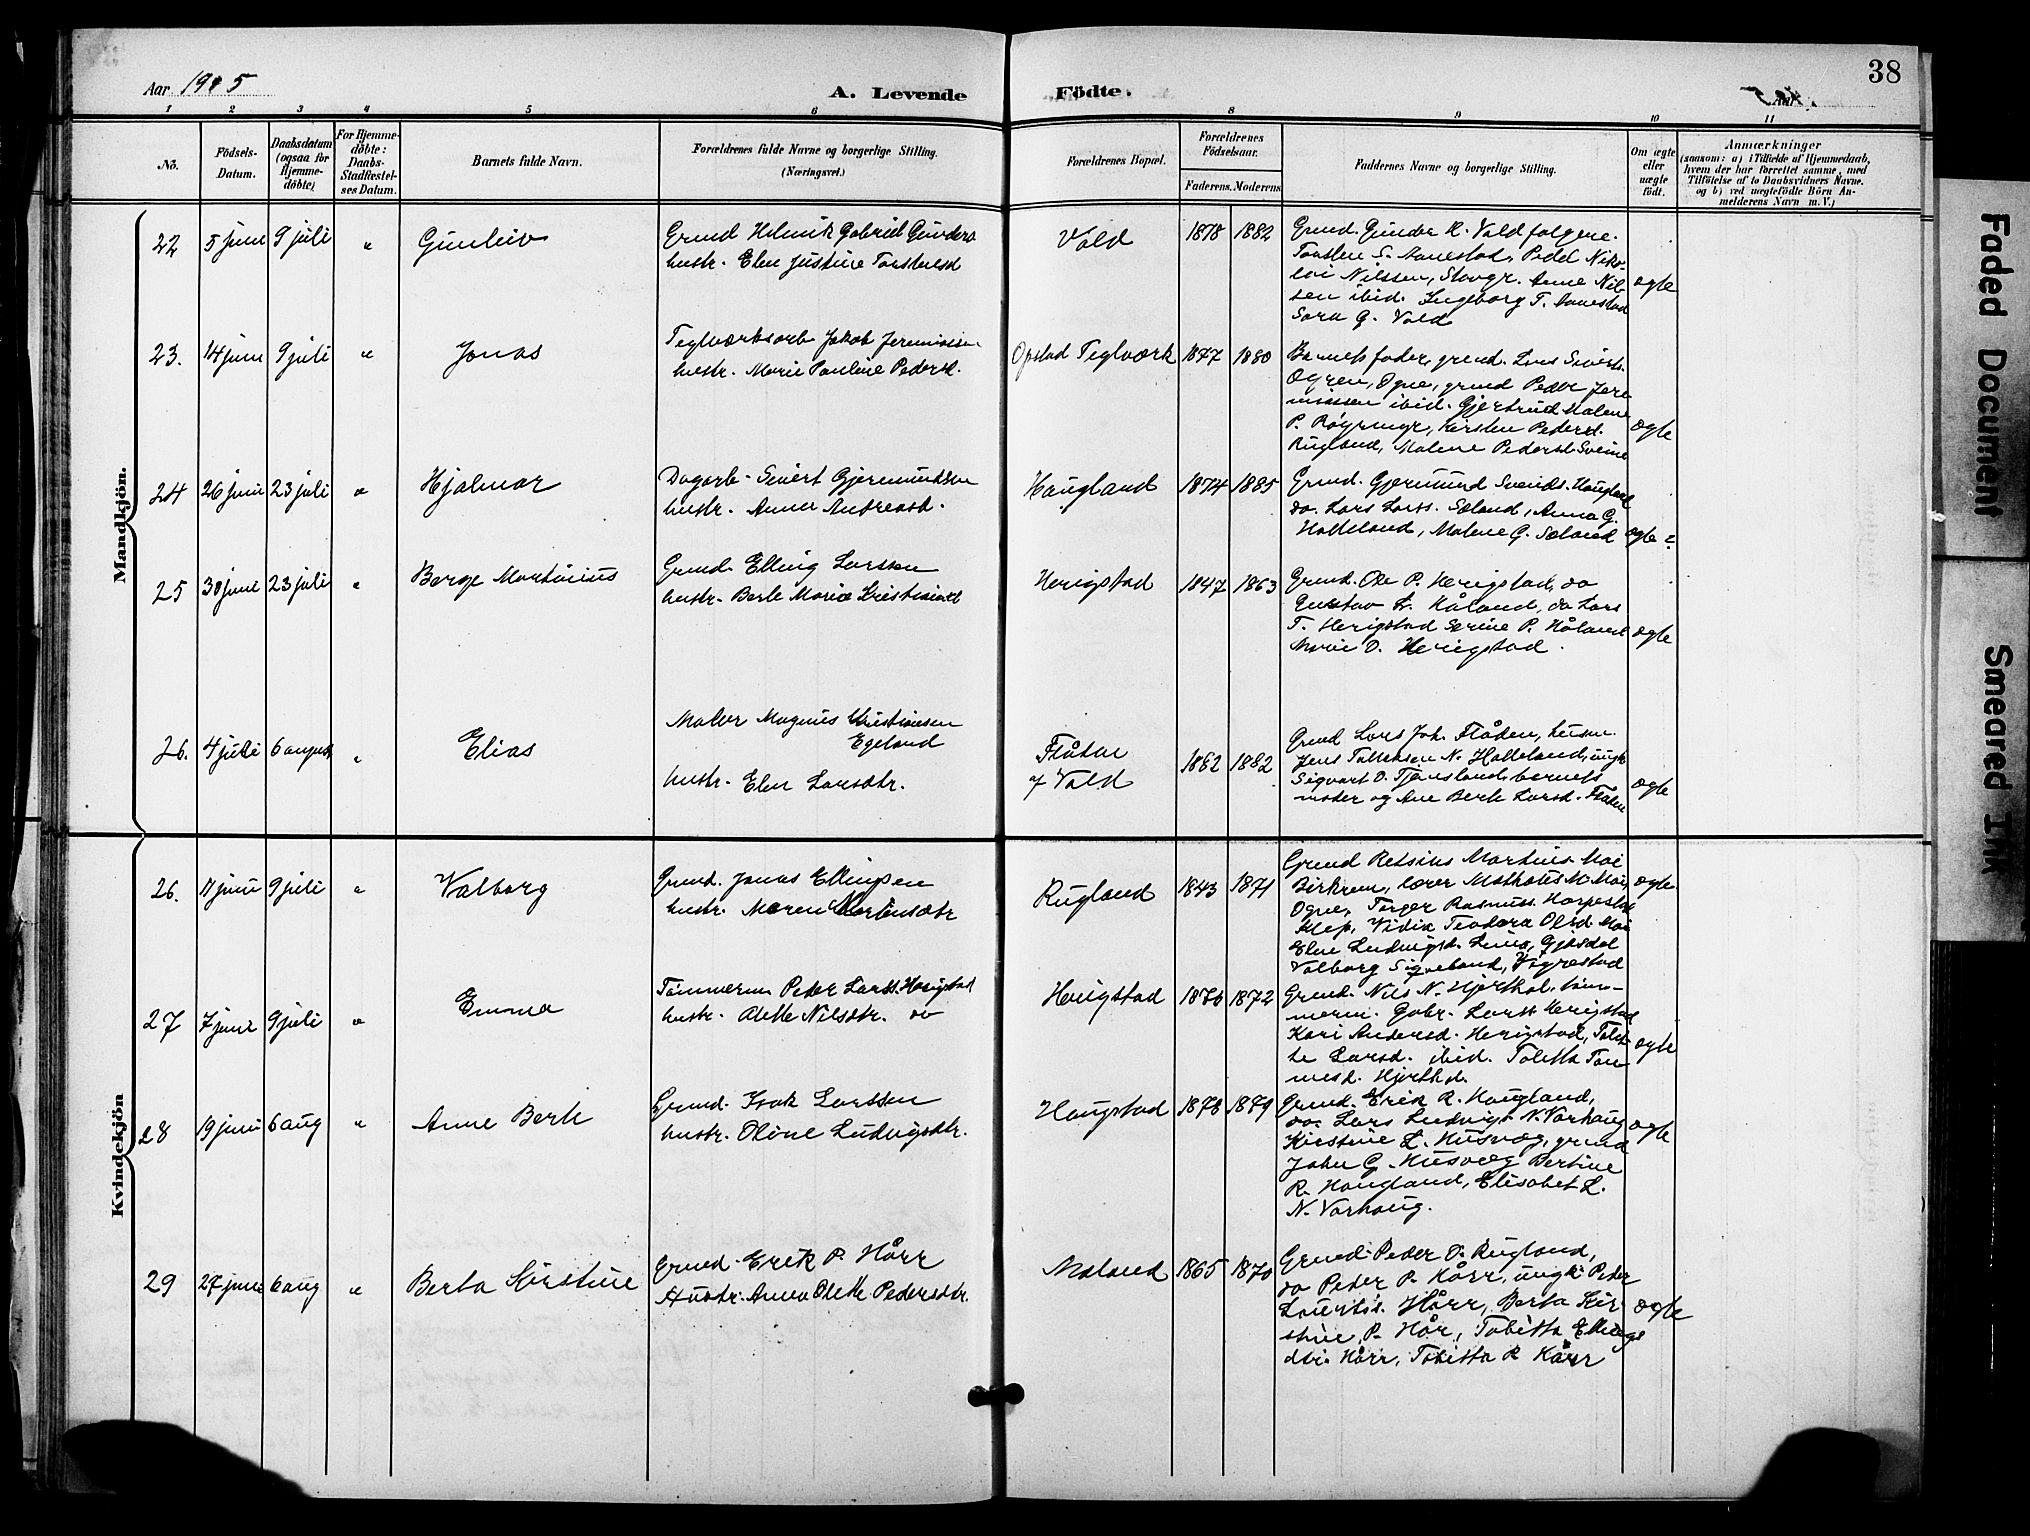 38
Aar 1905
A. Levende Födte.
1 2 3 4 5 6 8 9 10 11
No.
Födsels-
Datum.
Daabsdatum
(ogsaa for
Hjemme-
döbte)
For Hjemme-
döbte:
Daabs-
Stadfæstel-
ses Datum.
Barnets fulde Navn.
Forældrenes fulde Navne og borgerlige Stilling.
(Næringsvei.)
Forældrenes Bopæl.
Forældrenes
Födselsaar.
Faderens. Moderens.
Faddernes Navne og borgerlige Stilling.
Om ægte
eller
uægte
födt.
Anmærkninger
(saasom: a) i Tilfælde af Hjemmedaab,
hvem der har forrettet samme, med
Tilföielse af to Daabsvidners Navne.
og b) ved uægtefödte Börn An-
melderens Navn m. V.)
Mandkjön.
22 5 juni 9 juli " Gunleiv
Grund Helmik Gabriel Gunders
hustr. Elen Justine Torstensd
Vold 1878 1882
Grund. Gunder R. Vold følgere.
Torsten S. Aanestad, Pedd Niko-
lai Nilssen, Stavgr. Anne Nil-
sen ibid. Ingeborg T. Aanestad
Sara G. Vold
ægte
23. 14 juni 9 juli " Jonas
Teglværksarb Jakob Jeremiassen
hustr. Marie Pauline Pedersd.
Opstad Teglværk 1877 1880
Barnets fader, grund. Lars Siverts.
Ogren, Ogne, grund Peder Jere
miassen ibid. Gjertrud Malene
P. Røyrmyr, Kirsten Pedersd.
Rugland, Malene Pedersd Sveine
ægte
24 26 juni 23 juli " Hjalmar
Dagarb. Sivert Gjermundsen
hustr. Anna Andreasd.
Haugland 1874 1885
Grund. Gjermund Svends. Haugland
do. Lars Larss. Sæland, Anna G.
Halleland, Malene G. Sæland
ægte
25 30 juni 23 juli " Berge Martinius
Grund. Elling Larssen
hustr. Berte Marie Kristiansd
Herigstad 1847 1863
Grund. Ole P. Herigstad, do
Gustav L. Håland, do Lars
T. Herigstad Serine P. Håland
Marie O. Herigstad.
ægte
26. 4 juli 6 august " Elias
Maler Magnus Kristiansen
Egeland
hustr. Elen Larsdtr.
Flåten
af Vold 1862 1882
Grund Lars Joh. Flåden, husm.
Jens Tollefsen N. Halleland, ungk
Sigvart O. Tjånsland, barnets
moder og Ane Berte Larsd. Flåten
ægte
Kvindekjön
26. 11 juni 9 juli " Valborg
Grund. Jonas Ellingsen
hustr. Maren Mortensdtr
Rugland 1843 1871
Grund Retsius Martins Moi
Birkrem, lærer Mathatis M. Moi,
Ogne, Torger Rasmuss. Horpestad
Klep, Vidia Teodora Olsd. Moi
Elen Ludvigsd. Lima, Gjesdal
Valborg Sigveland, Vigrestad
ægte
27 7 juni 9 juli " Emma
Tømmerm Peder Larss. Herigstad
hustr. Olette Nilsdtr. do
Herigstad 1876 1872
Grund. Nils N. Hjorthol, tøm-
merm. Gabr. Larss Herigstad
Kari Andersd. Herigstad, Tolet-
te Larsd. ibid. Toletta Tom
mesd. Hjorthd.
ægte
28 19 juni 6 aug " Anne Berte
Grund. Isak Larssen
hustr. Oline Ludvigsdtr.
Haugstad 1878 1879
Grund. Erik R. Haugland,
do. Lars Ludvigs. N. Varhaug
Kirstine L. Husvæg, grund
John G. Husvæg Bertine
R. Haugland, Elisabet L.
N. Varhaug.
ægte
29 27 juni 6 aug " Berta Kirstine
Grund. Erik P. Hårr
Hustr. Anna Olette Pedersdtr.
Moland 1865 1870
Grund. Peder O. Rugland,
do Peder P. Hårr, ungk Peder
Laurits. Hårr, Berta Kir-
stine P. Hår, Tobitta Ellings
dtr. Hårr, Tobitta R Hårr
ægte
Faded Document
Smeared Ink